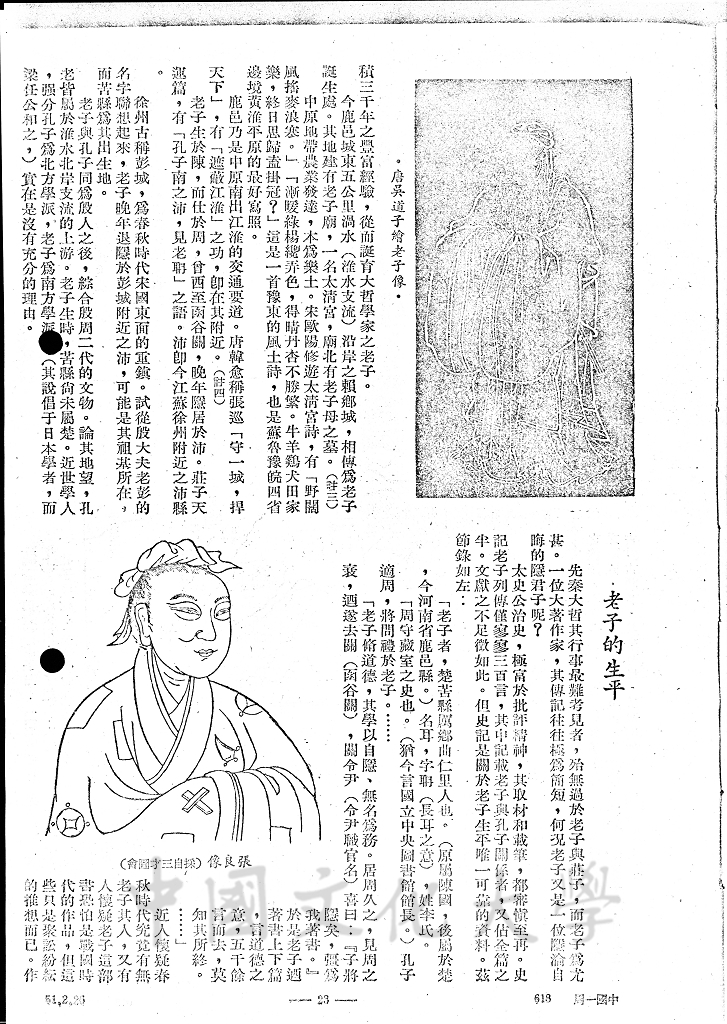 •唐吳道子繪老子像•
積三千年之豐富經驗，從而誕育大哲學家之老子。
今鹿邑城東五公里渦水（淮水支流）沿岸之賴鄉城，相傳爲老子
誕生處。其地建有老子廟，一名太淸宮，廟北有老子母之墓。（註三）
中原地帶農業發達，本爲樂土。宋歐陽修遊太淸宮詩，有「野闊
風搖麥浪寒。」「漸暖綠楊纔弄色，得晴丹杏不勝繁。牛羊鷄犬田家
樂，終日思歸盍掛冠？」這是一首豫東的風土詩，也是蘇魯豫皖四省
邊境黃淮平原的最好寫照。
鹿邑乃是中原南出江淮的交通要道。唐韓愈稱張巡「守一城，捍
天下」，有「遮蔽江淮」之功，卽在其附近。（註四）
老子生於陳，而仕於周，曾西至函谷關，晚年隱居於沛。莊子天
運篇，有「孔子南之沛，見老聃」之語。沛卽今江蘇徐州附近之沛縣
。
徐州古稱彭城，爲春秋時代宋國東面的重鎭。試從殷大夫老彭的
名字聯想起來，老子晚年退隱於彭城附近之沛，可能是其祖基所在，
而苦縣爲其出生地。
老子與孔子同爲殷人之後，綜合殷周二代的文物。論其地望，孔
老皆屬於淮水北岸支流的上游。老子生時，苦縣尙未屬楚。近世學人
，强分孔子爲北方學派，老子爲南方學派（其說倡于日本學者，而
梁任公和之，）實在是沒有充分的理由。
老子的生平
先秦大哲其行事最難考見者，殆無過於老子與莊子，而老子爲尤
甚。一位大著作家，其傳記往往極爲簡短，何況老子又是一位隱淪自
晦的隱君子呢？
太史公治史，極富於批評精神，其取材和載筆，都審愼至再。史
記老子列傳僅寥寥三百言，其中記載老子與孔子關係者，又佔全篇之
半。文獻之不足徵如此。但史記是關於老子生平唯一可靠的資料。茲
節錄如左：
「老子者，楚苦縣厲鄉曲仁里人也。（原屬陳國，後屬於楚
，今河南省鹿邑縣。）名耳，字聃（長耳之意），姓李氏。
「周守藏室之史也。（猶今言國立中央圖書館館長。）孔子
適周，將問禮於老子。……
「老子脩道德，其學以自隱、無名爲務。居周久之，見周之
衰，迺遂去關（函谷關），關令尹（令尹職官名）喜曰：『子將
隱矣，彊爲
我著書。』
於是老子迺
著書上下篇
，言道德之
意，五千餘
言而去，莫
知其所終。
……」
近人懷疑春
秋時代究竟有無
老子其人，又有
人懷疑老子這部
書恐怕是戰國時
代的作品，但這
些只是聚訟紛紜
的推想而已。作
張良像（採自三才圖會）
中國一周
618
— 23 —
51.2.26